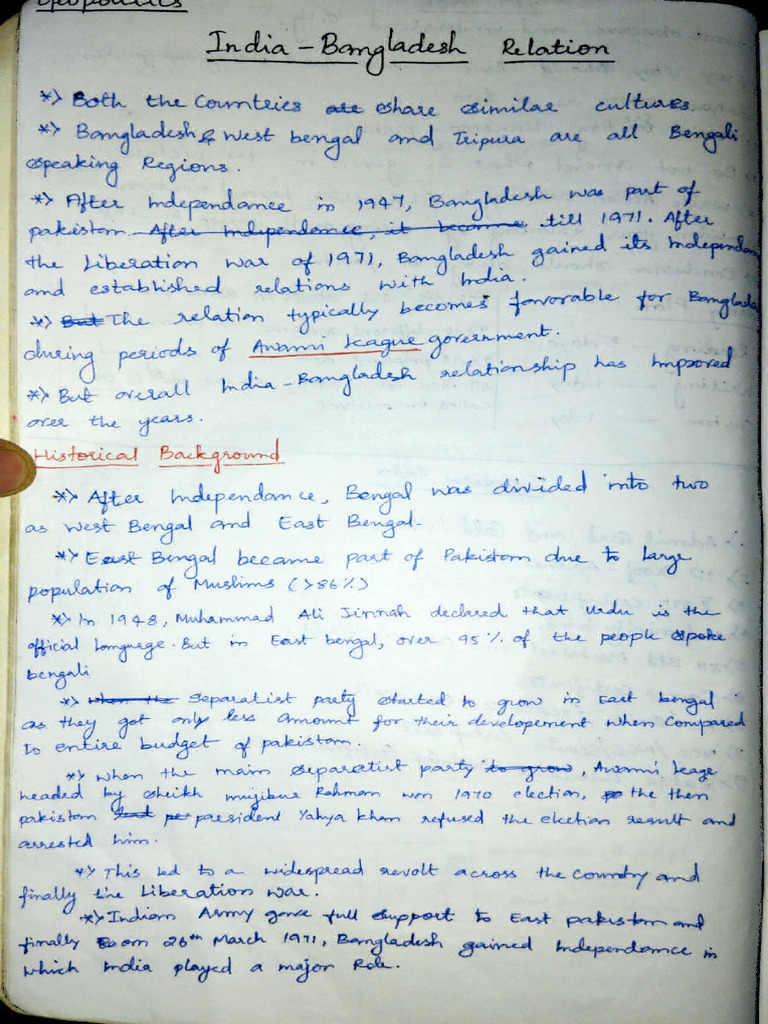 Geopolitics
India - Bangladesh Relation
*> Both the Countries are share similar cultures.
*> Bangladesh & West bengal and Tripura are all Bengali
speaking Regions.
*> After Independance in 1947, Bangladesh was part of
pakistan. After Independence, it became till 1971. After
the Liberation war of 1971, Bangladesh gained its Independan
and established relations with India.
*> But The relation typically becomes favorable for Banglade
during periods of Awami league government.
*> But overall India - Bangladesh relationship has Improved
over the years.
Historical Background
*> After Independance, Bengal was divided into two
as West Bengal and East Bengal.
*> East Bengal became part of Pakistan due to large
population of Muslims (>86%)
*> In 1948, Muhammad Ali Jinnah declared that Urdu is the
official language. But in East bengal, over 95% of the people spoke
bengali
*> when the Separatist party started to grow in East bengal
as they got only less amount for their developement when Compared
to entire budget of pakistan
*> When the main separatist party to grow, Awami leage
headed by sheikh mujibur Rahman won 1970 election, the then
pakistan president Yahya khan refused the election result and
arrested him.
*> This led to a widespread revolt across the Country and
finally the Liberation war.
*> Indian Army gave full support to East pakistan and
finally on 26th March 1971, Bangladesh gained Independance in
which India played a major Role.